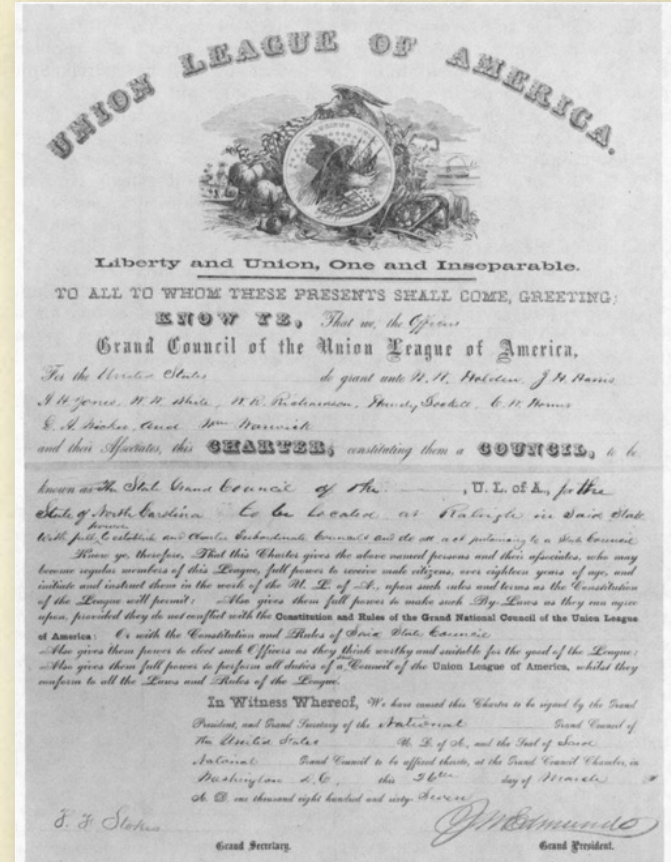 UNION LEAGUE OF AMERICA.
Liberty and Union, One and Inseparable.
TO ALL TO WHOM THESE PRESENTS SHALL COME, GREETING;
KNOW YE, That we, the Officers
Grand Council of the Union League of America,
For the United States do grant unto W. W. Holden, J. H. Harris
A H Jones, W. H. White, W. R. Richardson, Handy Lockett, C. H. Horner
and Wm Warwick
and their Associates, this CHARTER; constituting them a COUNCIL, to be
known as The State Grand Council of the , U. L. of A., for the
State of North Carolina to be located at Raleigh in Said State
with full power to establish and Charter Subordinate Councils and do all acts pertaining to a State Council
Know ye, therefore, That this Charter gives the above named persons and their associates, who may
become regular members of this League, full power to receive male citizens, over eighteen years of age, and
initiate and instruct them in the work of the U. L. of A., upon such rules and terms as the Constitution
of the League will permit: Also gives them full power to make such By-Laws as they can agree
upon, provided they do not conflict with the Constitution and Rules of the Grand National Council of the Union League
of America: Or with the Constitution and Rules of Said State Council
Also gives them power to elect such Officers as they think worthy and suitable for the good of the League:
Also gives them full power to perform all duties of a Council of the Union League of America, whilst they
conform to all the Laws and Rules of the League.
In Witness Whereof, We have caused this Charter to be signed by the Grand
President, and Grand Secretary of the National Grand Council of
the United States U. L. of A., and the Seal of Said
National Grand Council to be affixed thereto, at the Grand Council Chamber, in
Washington D.C. this 26th day of March
A. D. one thousand eight hundred and sixty-Seven
Stokes J M Edmunds
Grand Secretary. Grand President.